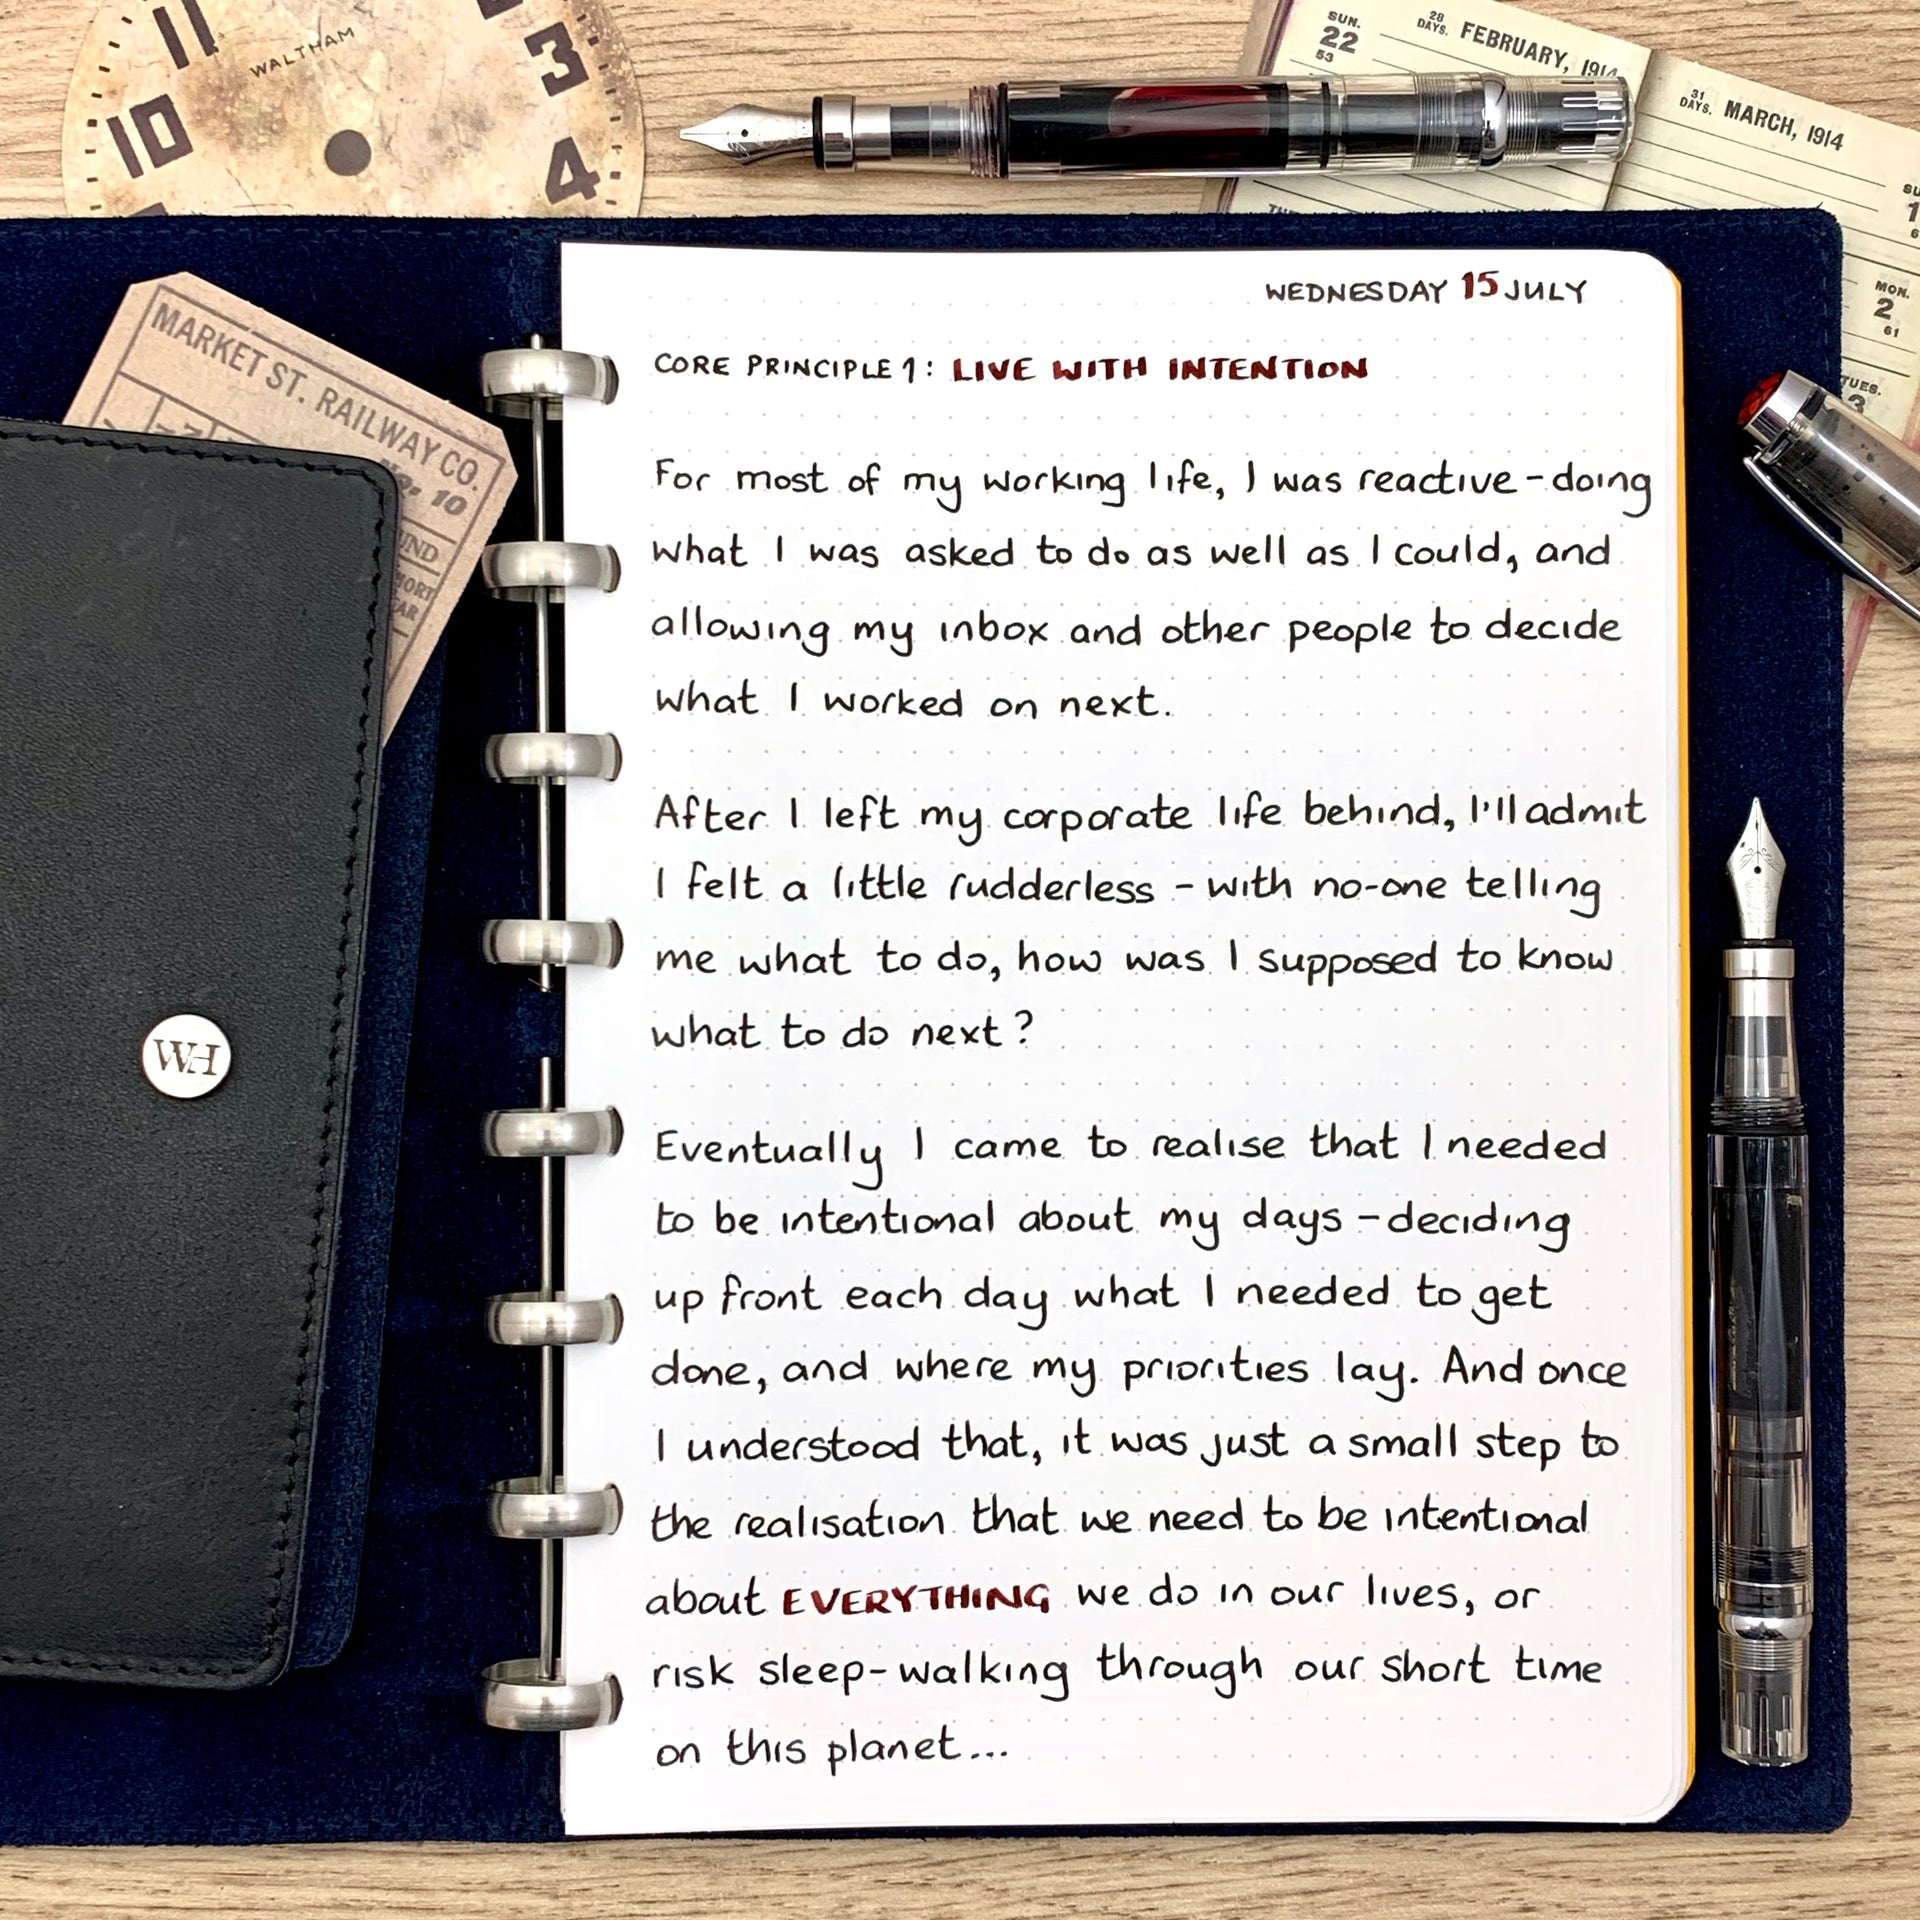 11
WALTHAM
3
10
4
SUN.
22
53
28
DAYS.
FEBRUARY, 1914
31
DAYS.
MARCH, 1914
MON.
2
61
TUES.
3
MARKET ST. RAILWAY CO.
10
WH
WEDNESDAY 15 JULY
CORE PRINCIPLE 1: LIVE WITH INTENTION
For most of my working life, I was reactive - doing
what I was asked to do as well as I could, and
allowing my inbox and other people to decide
what I worked on next.
After I left my corporate life behind, I'll admit
I felt a little rudderless - with no-one telling
me what to do, how was I supposed to know
what to do next?
Eventually I came to realise that I needed
to be intentional about my days - deciding
up front each day what I needed to get
done, and where my priorities lay. And once
I understood that, it was just a small step to
the realisation that we need to be intentional
about EVERYTHING we do in our lives, or
risk sleep-walking through our short time
on this planet...